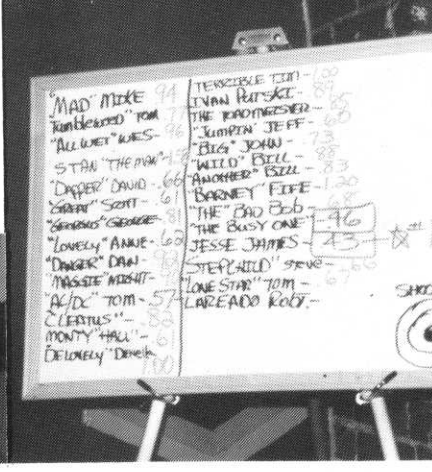 "MAD" MIKE 94
"Tumbleweed" TOM 77
"ALL WET" WES- 96
STAN "THE MAN"-
"DAPPER" DAVID-66
"GREAT" SCOTT- 61
"GEORGEO" GEORGE- 81
"LOVELY" ANNIE-60
"DANGER" DAN-
"MAGGIE" MIGHT-
"AC/DC" TOM-57
"CLEATUS"-
MONTY "HALL"-
"DELOVELY" Derek
100
TERRIBLE TIM-68
IVAN PUTSKI-
THE TOADMEISTER-
"JUMPIN" JEFF-
"BIG" JOHN-73
"WILD" BILL-
"ANOTHER" BILL-83
"BARNEY" FIFE-120
"THE" BAD Bob-
"THE BUSY ONE"-46
JESSE JAMES-43-☆
"STEPCHILD" STEVE-66
"LONE STAR" TOM-67
LAREADO ROBY-
SHOO